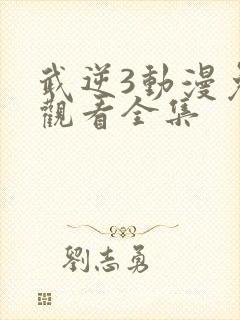 武逆3動漫免
觀看全集
劉志勇